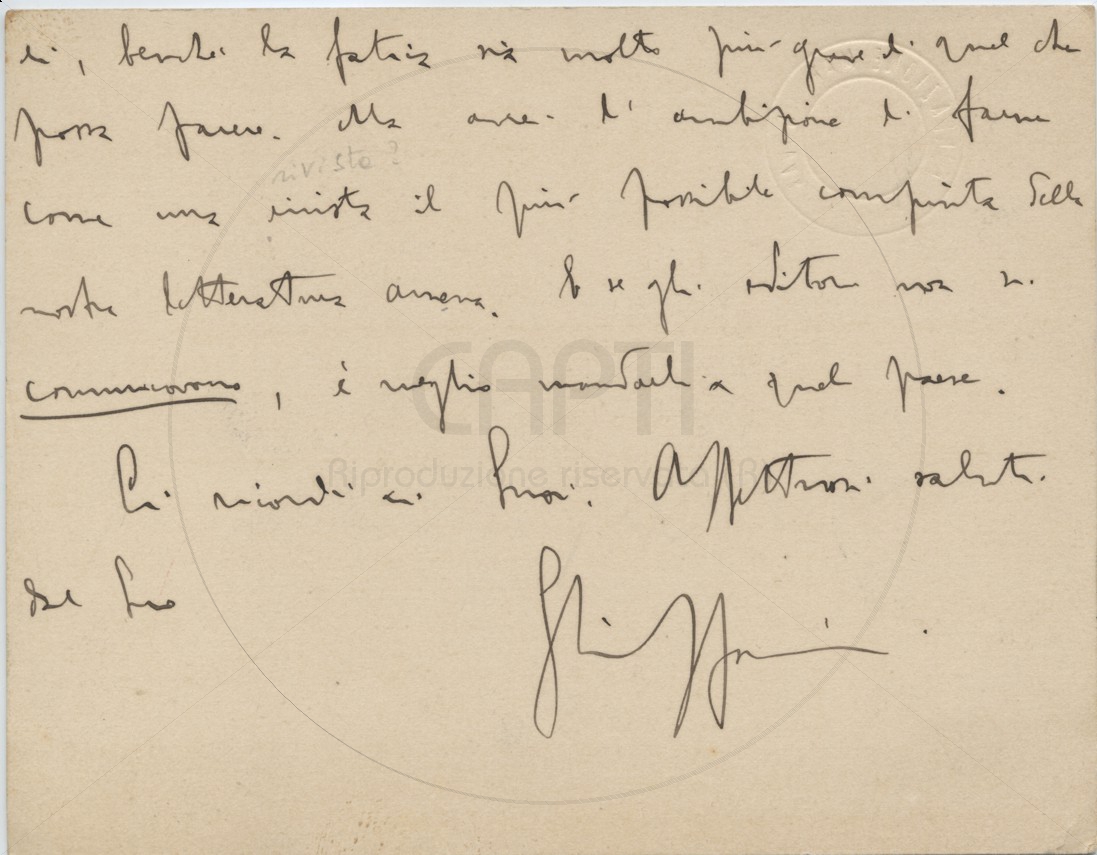 di, benché la fatica sia molto più grave di quel che
possa parere. Ma avrei l'ambizione di farne
rivista?
come una rivista il più possibile compiuta della
nostra letteratura amena. E se gli editori non si
commuovono, è meglio mandarli a quel paese.
CAPTI
Riproduzione riservata
Ci ricordi ai Suoi. Affettuosi saluti
dal Suo